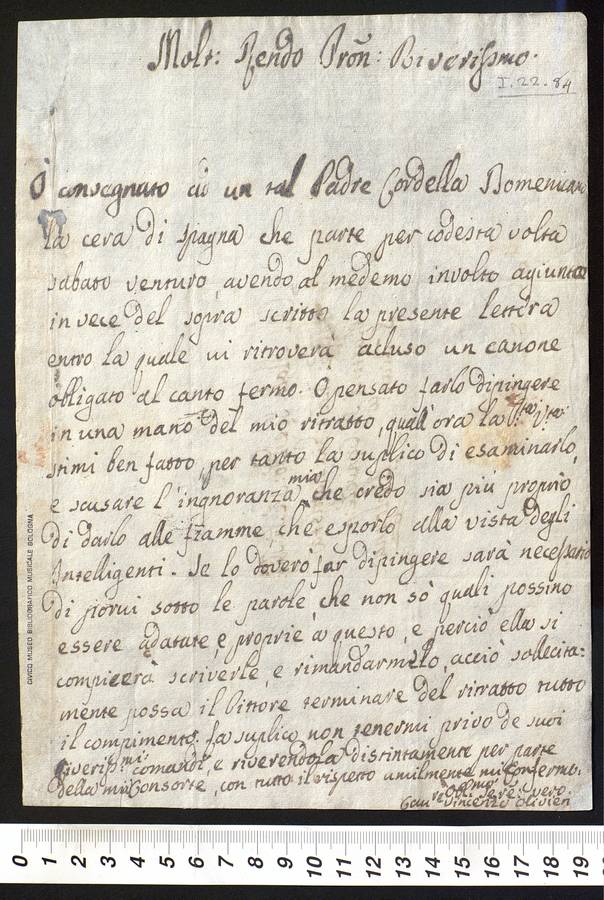 Molt: Rendo Pron: Riverissmo.
I.22.84
Ò consegnato ad un tal Padre Cordella Domenicano
la cera di spagna che parte per codesta volta
sabato venturo, avendo al medemo involto agiunta
in vece del sopra scritto la presente lettera
entro la quale vi ritroverà acluso un canone
obligato al canto fermo. O pensato farlo dipingere
in una mano del mio ritratto, quall'ora la P.tà V.ra
stimi ben fatto, per tanto la suplico di esaminarlo,
e scusare l'ingnoranza mia che credo sia più proprio
di darlo alle fiamme, che esporlo alla vista degli
Intelligenti. Se lo doverò far dipingere sarà necessario
di porvi sotto le parole, che non sò quali possino
essere adatate, e proprie a questo, e perciò ella si
compiacerà scriverle, e rimandarmelo, acciò sollecita=
mente possa il Pittore terminare del ritratto tutto
il compimento. La suplico non tenermi privo de suoi
riveriss.mi comandi, e riverendola distintamente per parte
della mia Consorte, con tutto il rispetto umilmente mi Confermo.
Obl: Serv: vero.
Vincenzo Olivieri
CIVICO MUSEO BIBLIOGRAFICO MUSICALE BOLOGNA
0 1 2 3 4 5 6 7 8 9 10 11 12 13 14 15 16 17 18 19